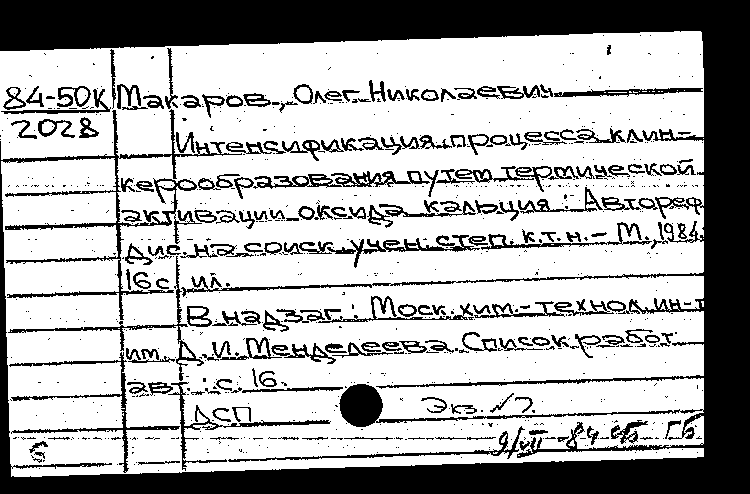 84-50К Макаров, Олег Николаевич
2028
Интенсификация процесса клин-
керообразования путем термической
активации оксида кальция: Автореф
дис. на соиск. учен. степ. к.т.н. - М., 1984.
16 с., ил.
В надзаг.: Моск. хим.-технол. ин-т
им. Д.И. Менделеева. Список работ
авт.: с. 16.
ДСП Экз. №
9/VII -84 ГБ